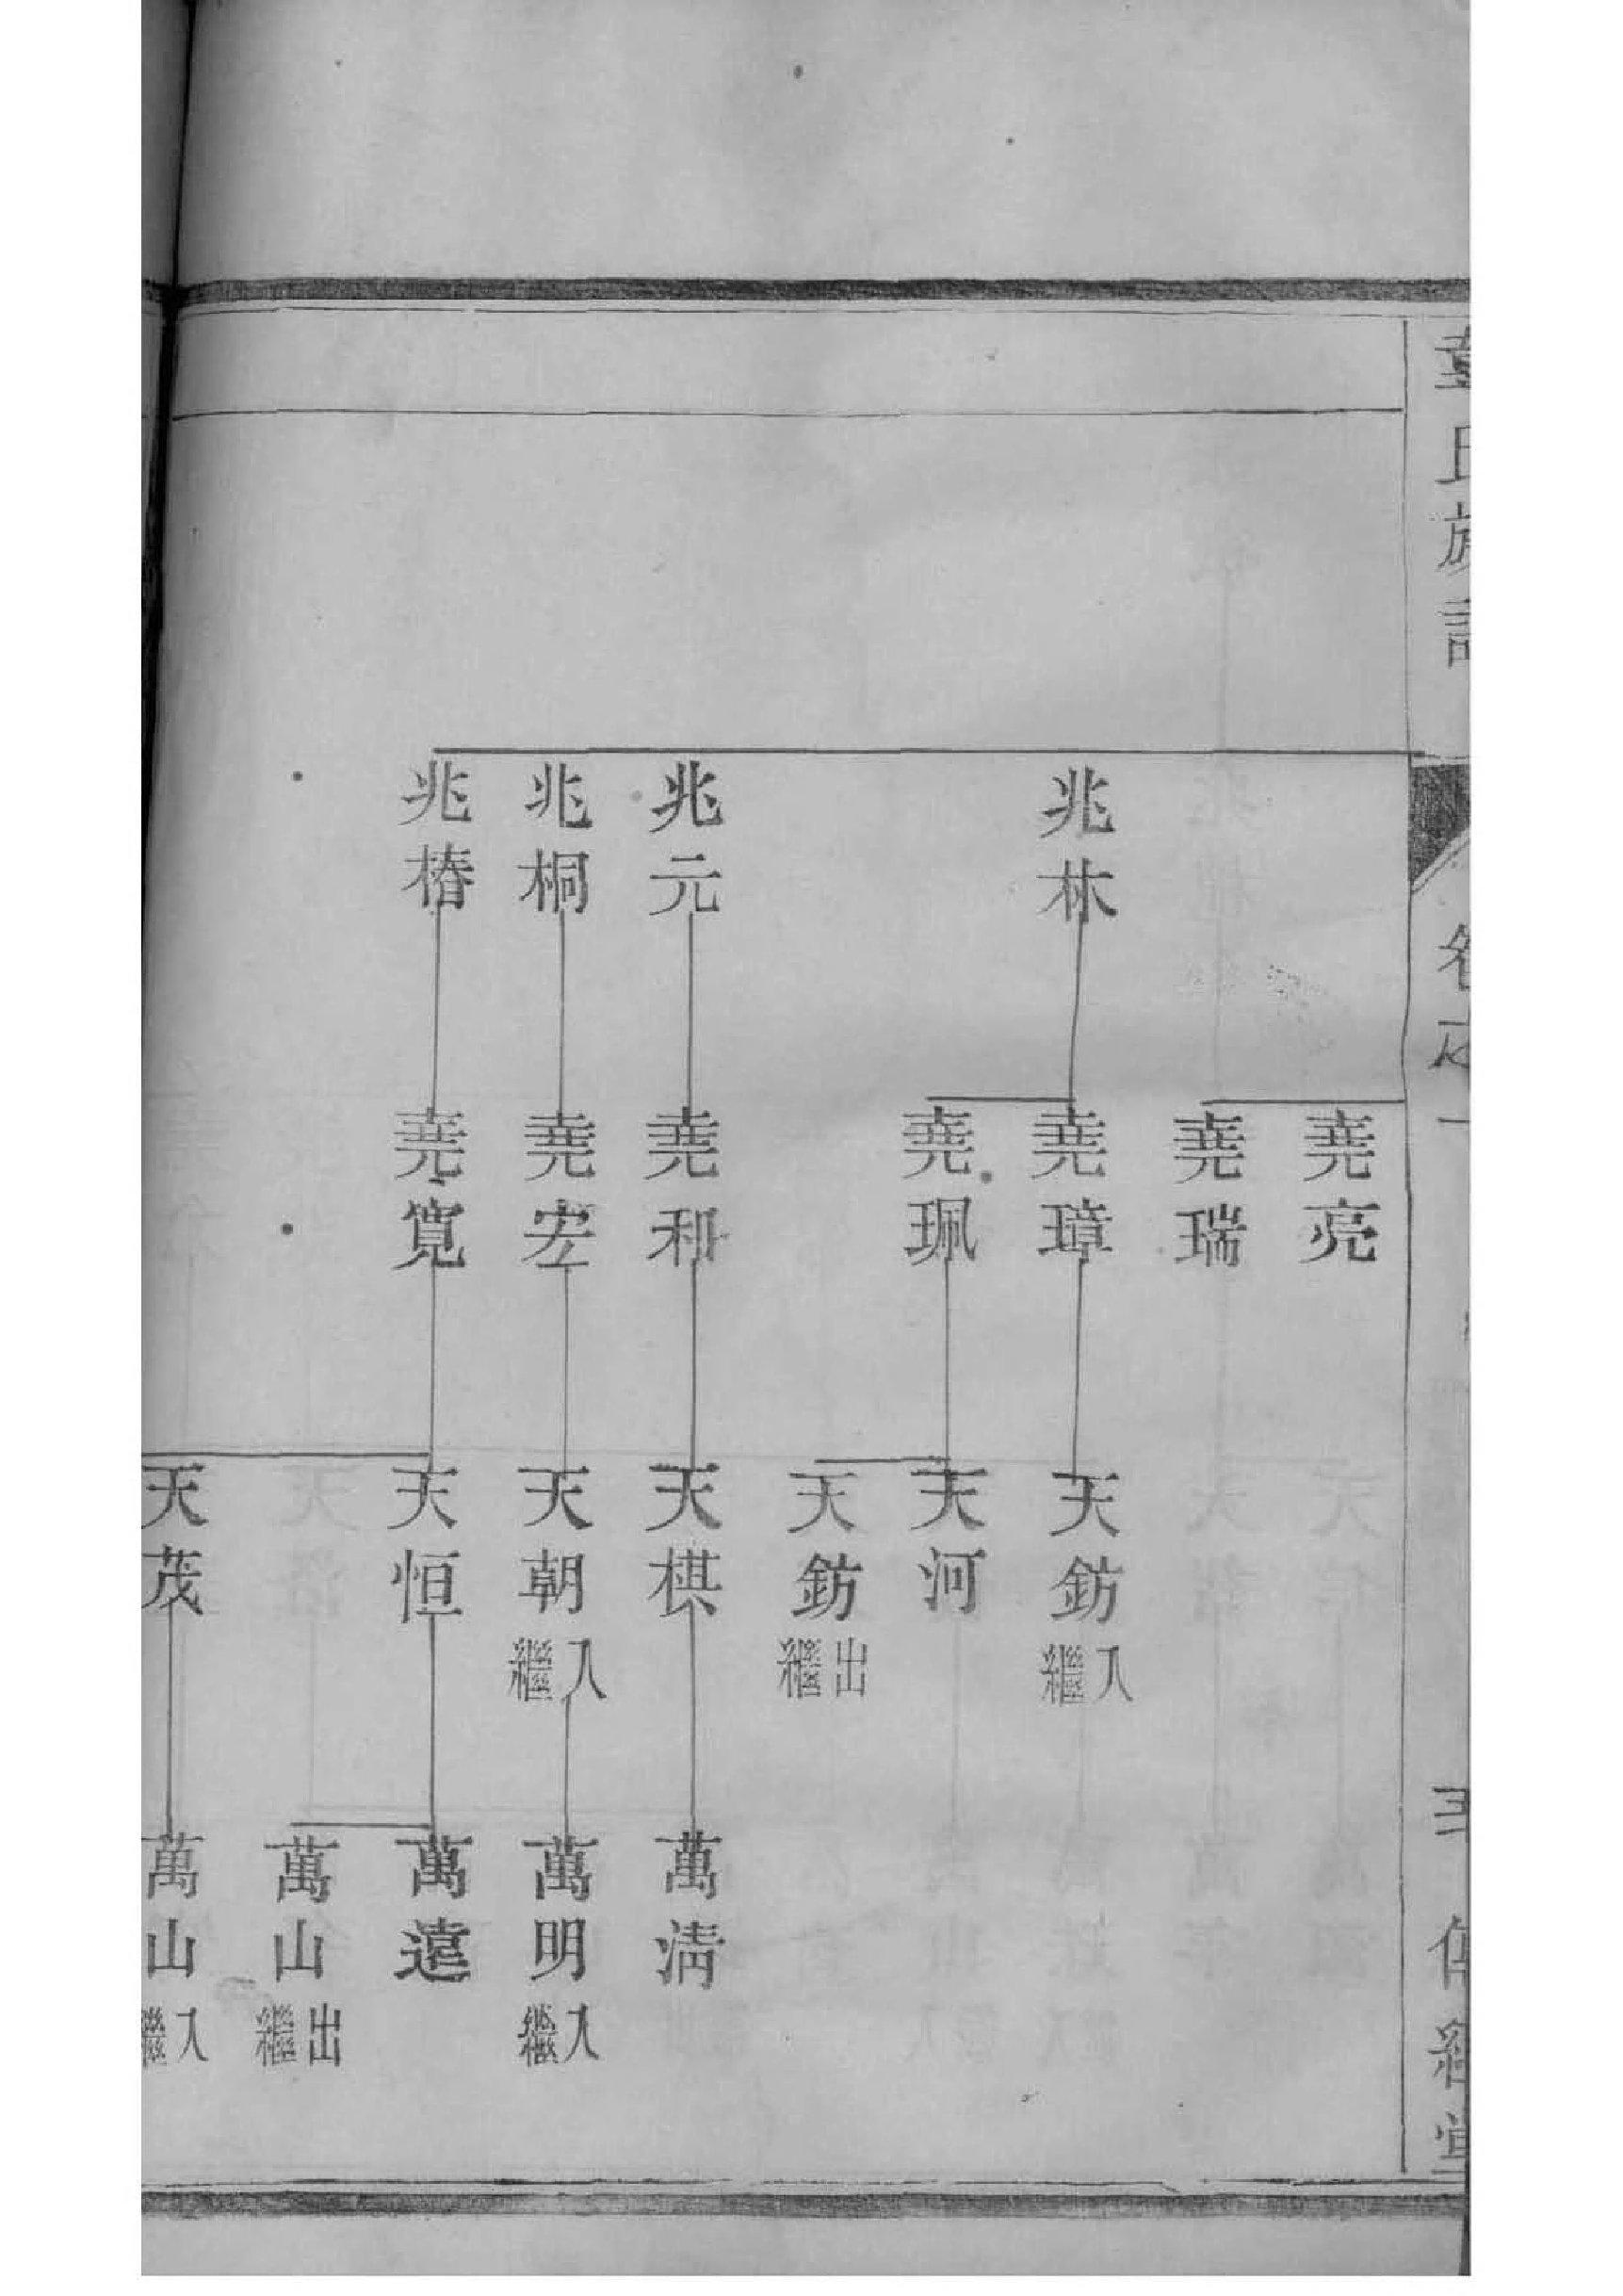 氏族譜
卷之一
堂
兆林
兆元
兆桐
兆椿
堯亮
堯瑞
堯璋
堯珮
堯和
堯宏
堯寬
天鈁 入繼
天河
天鈁 出繼
天棋
天朝 入繼
天恒
天茂
萬清
萬明 入繼
萬遠
萬山 出繼
萬山 入繼